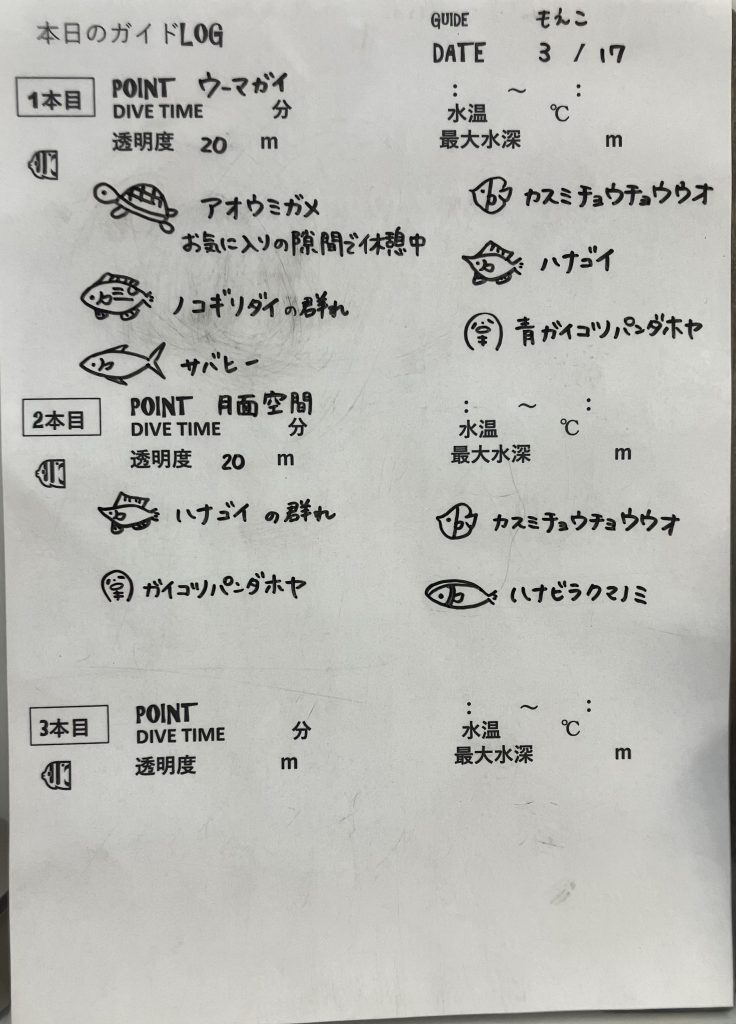 本日のガイドLOG
GUIDE もえこ
DATE 3 / 17
1本目 POINT ウーマガイ : ～ :
DIVE TIME 分 水温 ℃
透明度 20 m 最大水深 m
アオウミガメ
お気に入りの隙間で休憩中
ノコギリダイの群れ
サバヒー
カスミチョウチョウウオ
ハナゴイ
青ガイコツパンダホヤ
2本目 POINT 月面空間 : ～ :
DIVE TIME 分 水温 ℃
透明度 20 m 最大水深 m
ハナゴイの群れ
ガイコツパンダホヤ
カスミチョウチョウウオ
ハナビラクマノミ
3本目 POINT : ～ :
DIVE TIME 分 水温 ℃
透明度 m 最大水深 m